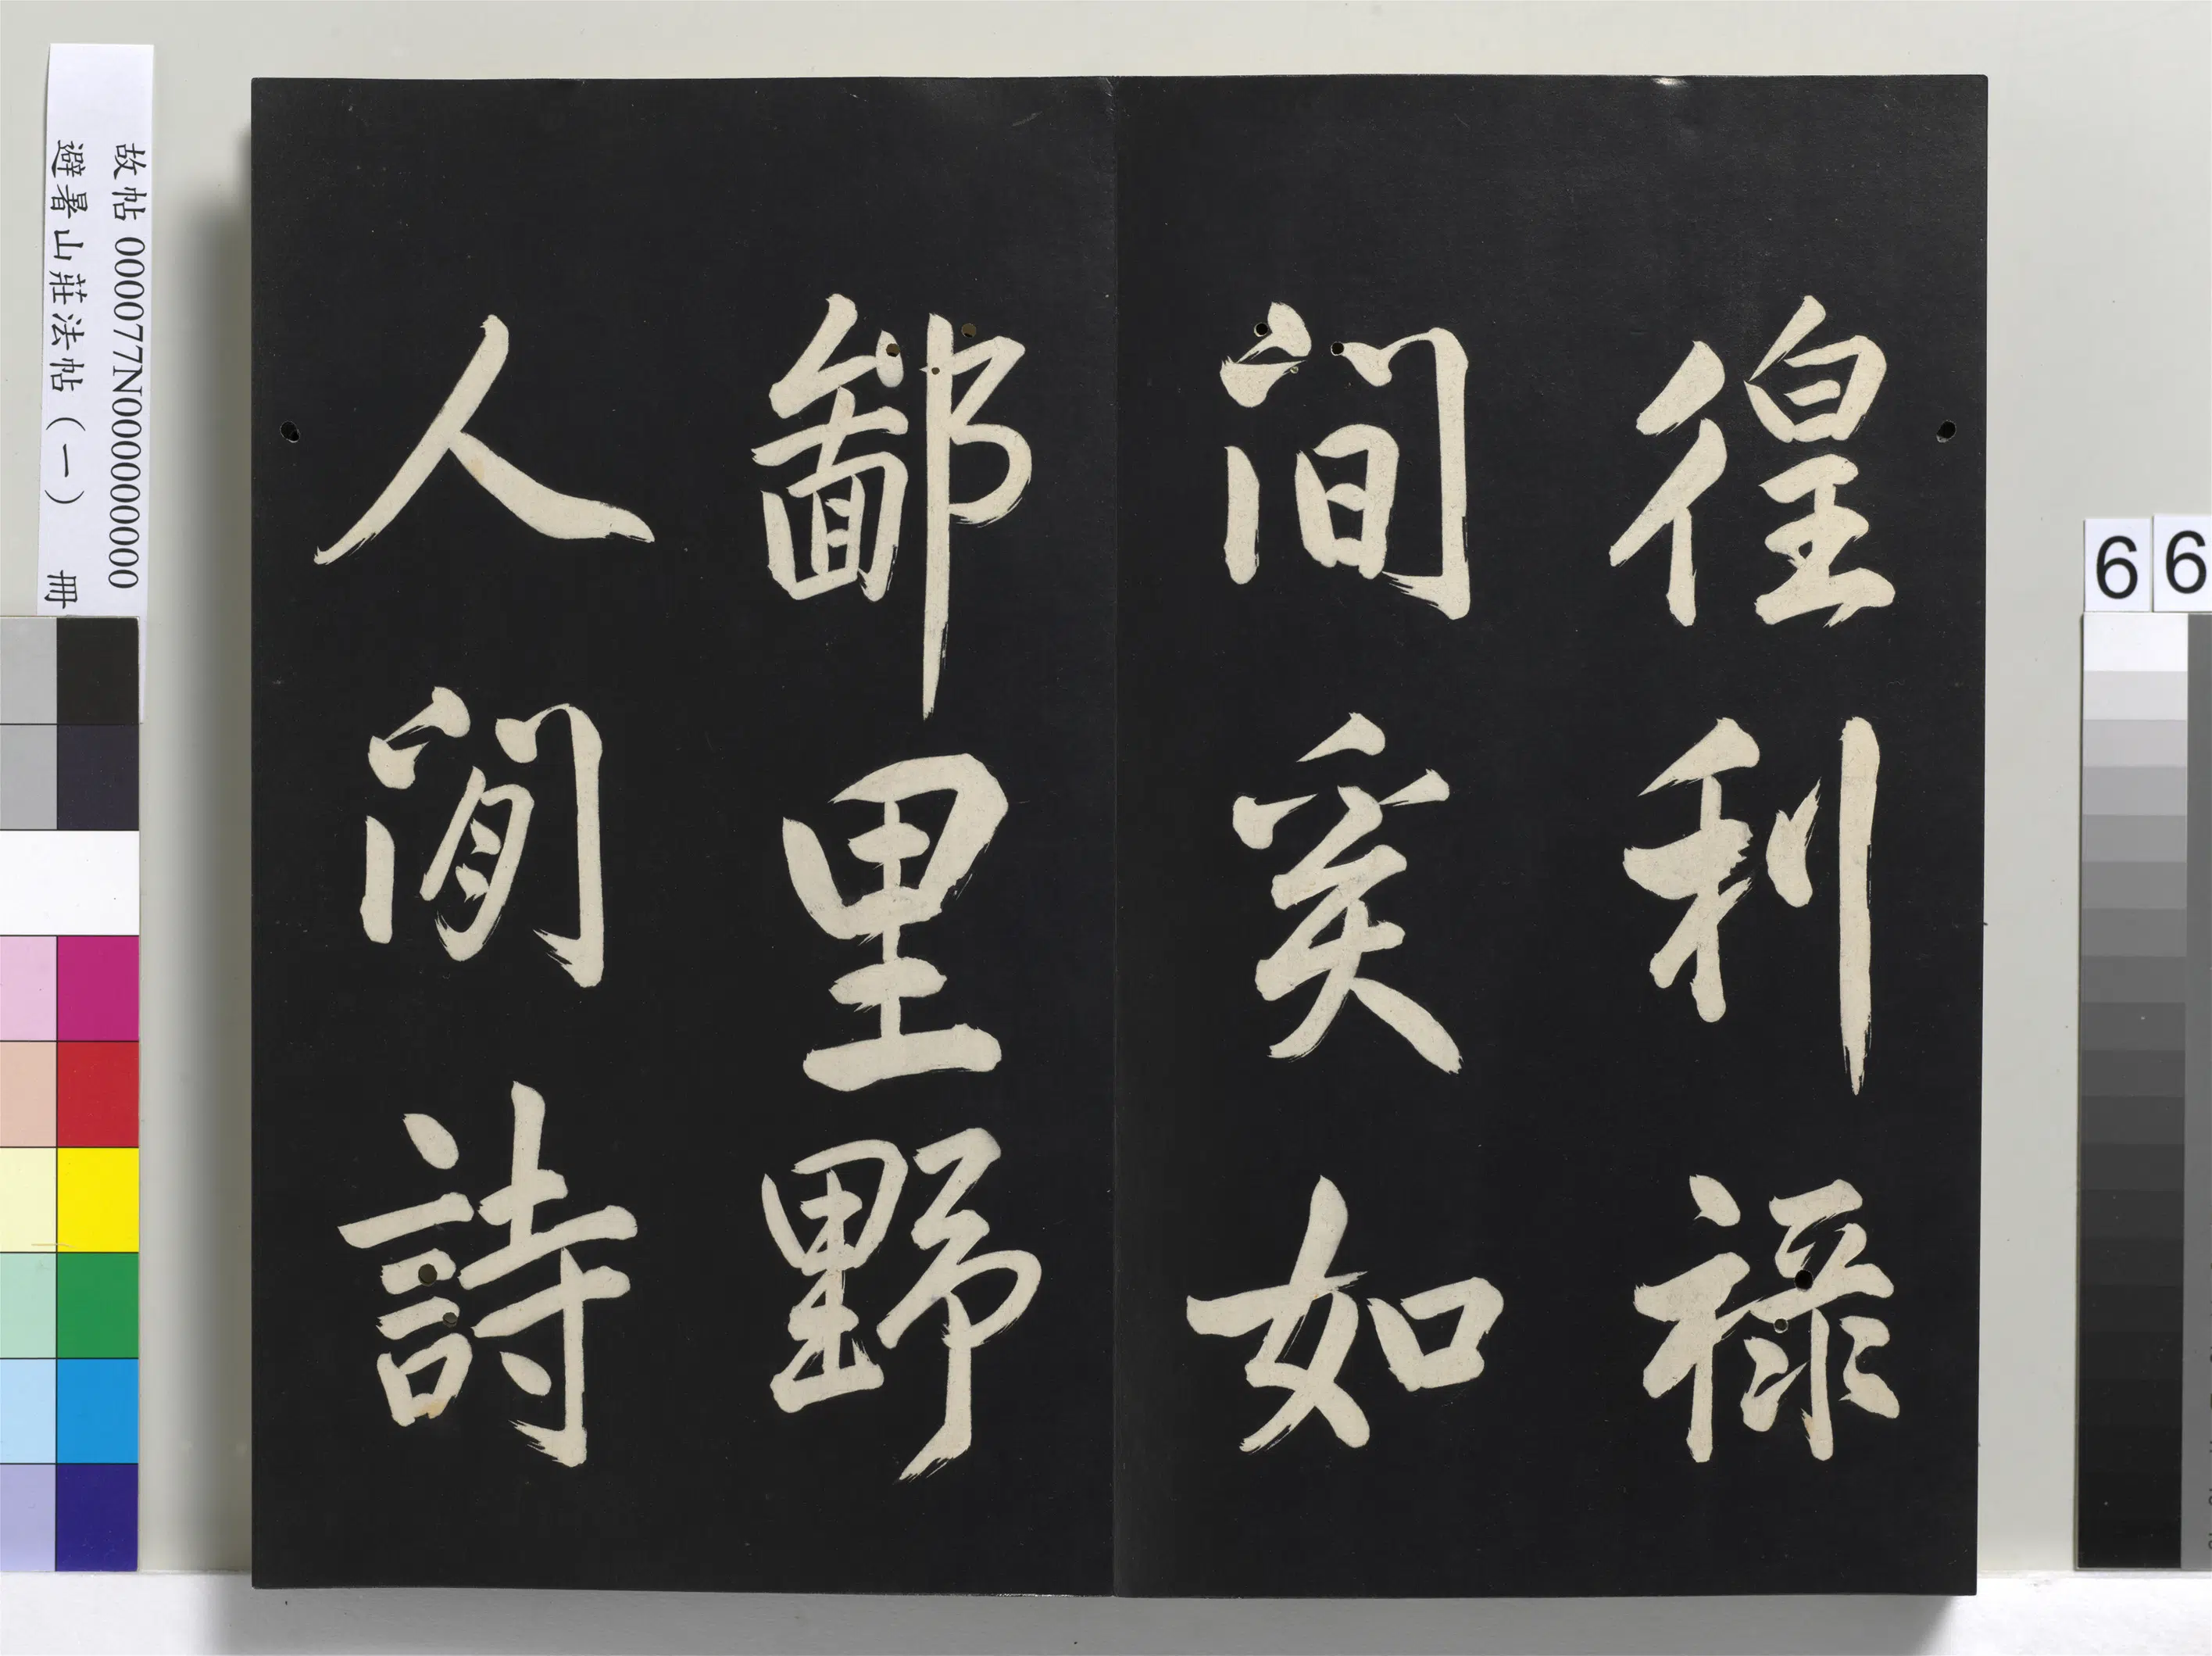 徨利祿
間奚如
鄙里野
人閒詩
故帖 000077N000000000
避暑山莊法帖（一） 冊
66